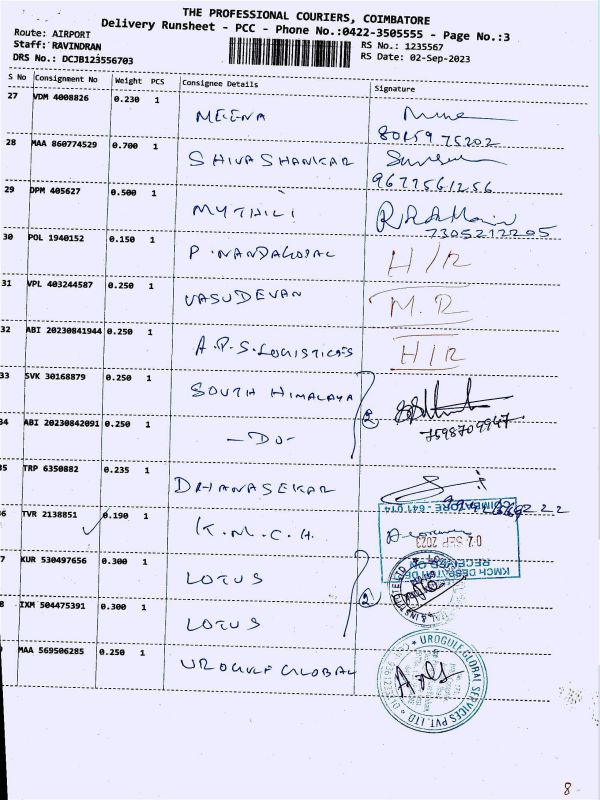 THE PROFESSIONAL COURIERS, COIMBATORE
Delivery Runsheet - PCC - Phone No.:0422-3505555 - Page No.:3
Route: AIRPORT
Staff: RAVINDRAN
DRS No.: DCJB123556703
RS No.: 1235567
RS Date: 02-Sep-2023
S No Consignment No Weight PCS Consignee Details Signature
27 VDM 4008826 0.230 1 MEENA
28 MAA 860774529 0.700 1 SHIVA SHANKAR
29 DPM 405627 0.500 1 MYTHILI
7305212205
30 POL 1940152 0.150 1 P. NANDAGOPAL H/R
31 VPL 403244587 0.250 1 VASUDEVAN M.R
32 ABI 20230841944 0.250 1 A.P.S. LOGISTICES H/R
33 SVK 30168879 0.250 1 SOUTH HIMALAYA
34 ABI 20230842091 0.250 1 -DO- 2
7598709947
35 TRP 6350882 0.235 1 DHANASEKAR
6 TVR 2138851 0.190 1 K.M.C.H
COIMBATORE - 641 014
02 SEP 2023
RECEIVED ON
7 KUR 530497656 0.300 1 LOTUS
8 IXM 504475391 0.300 1 LOTUS 2
MAA 569506285 0.250 1 UROGULF GLOBAL
UROGULF GLOBAL SERVICES PVT. LTD
8